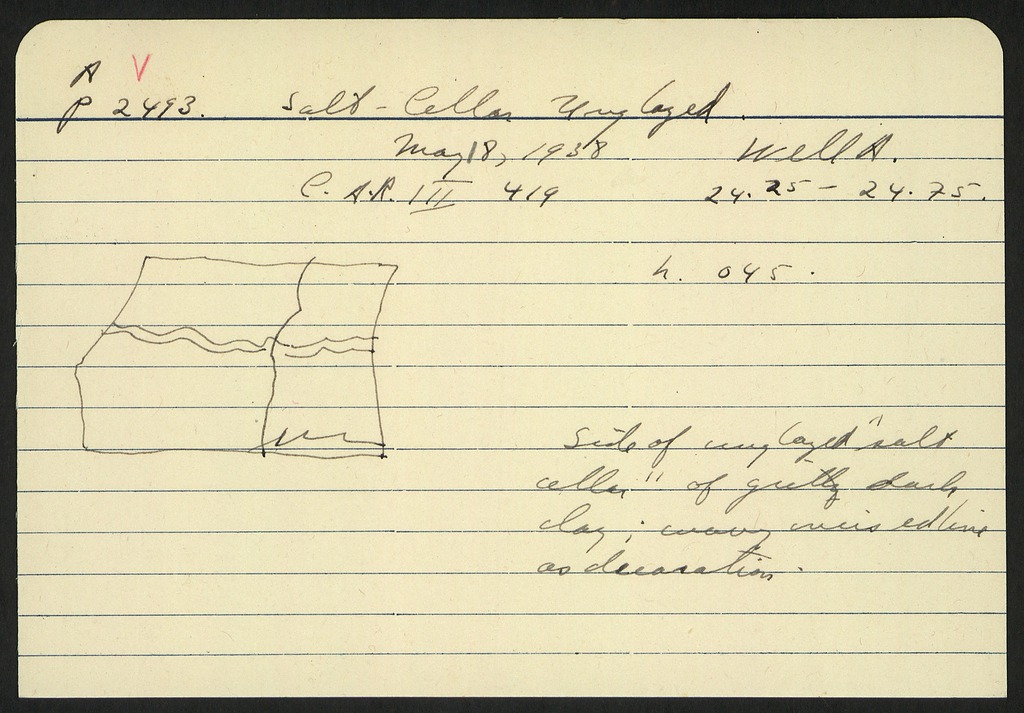 A V
P 2493. Salt-Cellar Unglazed.
May 18, 1938 Well A.
C. A.R. III 419 24.25 - 24.75.
h. 045.
Side of unglazed "salt
cellar" of gritty dark
clay; wavy incised line
as decoration.